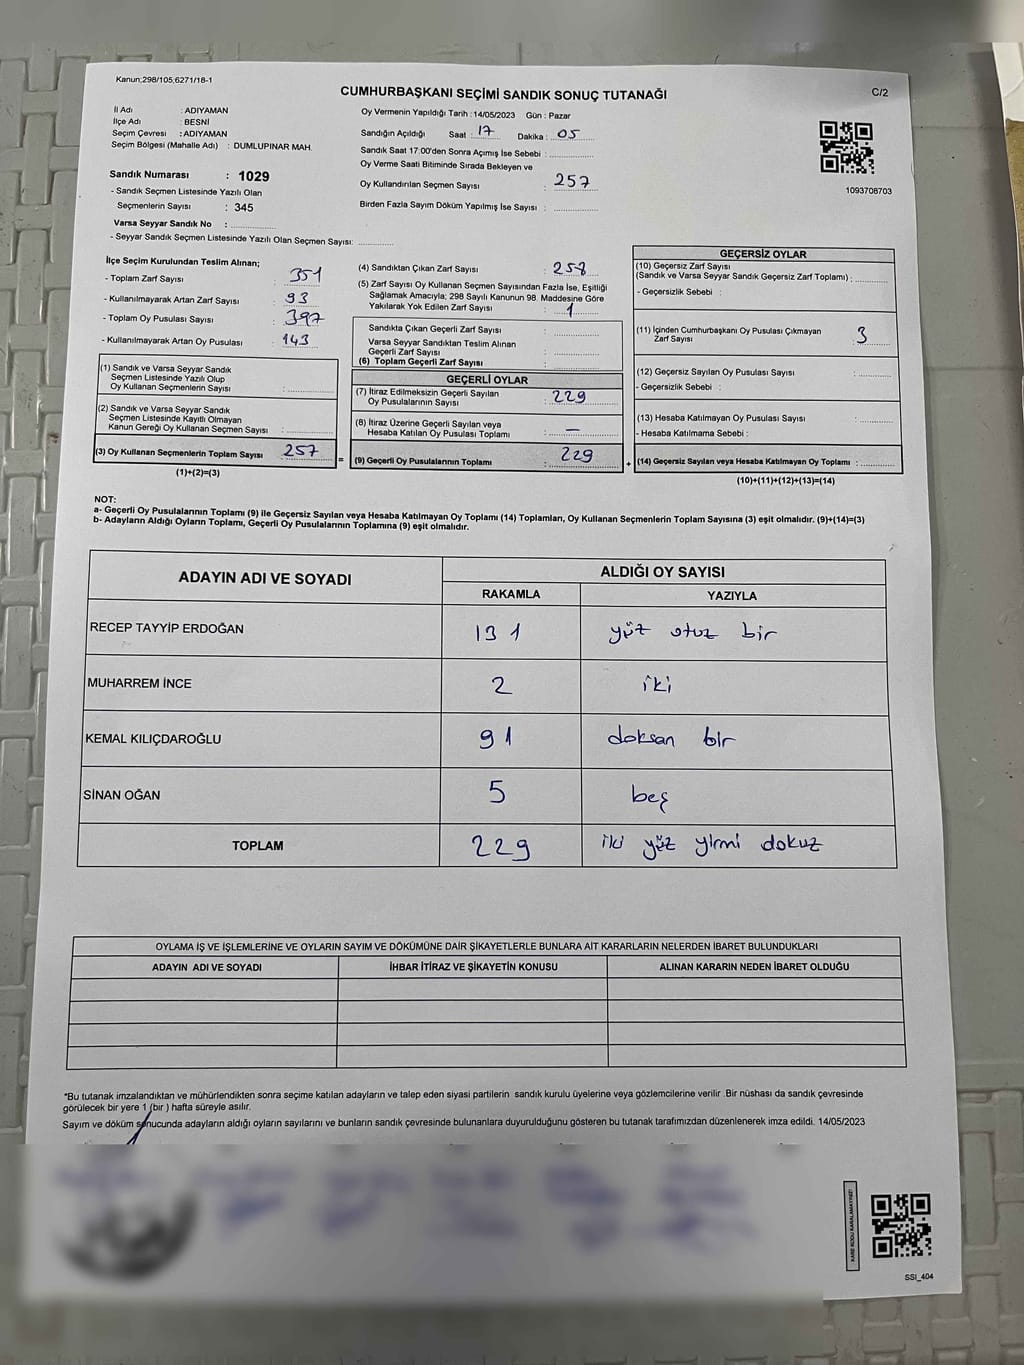 Kanun;298/105,6271/18-1
CUMHURBAŞKANI SEÇİMİ SANDIK SONUÇ TUTANAĞI
C/2
İl Adı : ADIYAMAN
İlçe Adı : BESNİ
Seçim Çevresi : ADIYAMAN
Seçim Bölgesi (Mahalle Adı) : DUMLUPINAR MAH.
Sandık Numarası : 1029
- Sandık Seçmen Listesinde Yazılı Olan
Seçmenlerin Sayısı : 345
Varsa Seyyar Sandık No :
- Seyyar Sandık Seçmen Listesinde Yazılı Olan Seçmen Sayısı:
Oy Vermenin Yapıldığı Tarih : 14/05/2023 Gün : Pazar
Sandığın Açıldığı Saat : 17 Dakika : 05
Sandık Saat 17:00'den Sonra Açımış İse Sebebi :
Oy Verme Saati Bitiminde Sırada Bekleyen ve
Oy Kullandırılan Seçmen Sayısı : 257
Birden Fazla Sayım Döküm Yapılmış İse Sayısı :
1093706703
İlçe Seçim Kurulundan Teslim Alınan;
- Toplam Zarf Sayısı : 351
- Kullanılmayarak Artan Zarf Sayısı : 93
- Toplam Oy Pusulası Sayısı : 397
- Kullanılmayarak Artan Oy Pusulası : 143
(1) Sandık ve Varsa Seyyar Sandık
Seçmen Listesinde Yazılı Olup
Oy Kullanan Seçmenlerin Sayısı :
(2) Sandık ve Varsa Seyyar Sandık
Seçmen Listesinde Kayıtlı Olmayan
Kanun Gereği Oy Kullanan Seçmen Sayısı :
(3) Oy Kullanan Seçmenlerin Toplam Sayısı 257
(1)+(2)=(3)
(4) Sandıktan Çıkan Zarf Sayısı : 258
(5) Zarf Sayısı Oy Kullanan Seçmen Sayısından Fazla İse, Eşitliği
Sağlamak Amacıyla; 298 Sayılı Kanunun 98. Maddesine Göre
Yakılarak Yok Edilen Zarf Sayısı : 1
Sandıkta Çıkan Geçerli Zarf Sayısı :
Varsa Seyyar Sandıktan Teslim Alınan
Geçerli Zarf Sayısı :
(6) Toplam Geçerli Zarf Sayısı :
GEÇERLİ OYLAR
(7) İtiraz Edilmeksizin Geçerli Sayılan
Oy Pusulalarının Sayısı : 229
(8) İtiraz Üzerine Geçerli Sayılan veya
Hesaba Katılan Oy Pusulası Toplamı : —
= (9) Geçerli Oy Pusulalarının Toplamı : 229
GEÇERSİZ OYLAR
(10) Geçersiz Zarf Sayısı
(Sandık ve Varsa Seyyar Sandık Geçersiz Zarf Toplamı) :
- Geçersizlik Sebebi :
(11) İçinden Cumhurbaşkanı Oy Pusulası Çıkmayan
Zarf Sayısı : 3
(12) Geçersiz Sayılan Oy Pusulası Sayısı :
- Geçersizlik Sebebi :
(13) Hesaba Katılmayan Oy Pusulası Sayısı :
- Hesaba Katılmama Sebebi :
+ (14) Geçersiz Sayılan veya Hesaba Katılmayan Oy Toplamı :
(10)+(11)+(12)+(13)=(14)
NOT:
a- Geçerli Oy Pusulalarının Toplamı (9) ile Geçersiz Sayılan veya Hesaba Katılmayan Oy Toplamı (14) Toplamları, Oy Kullanan Seçmenlerin Toplam Sayısına (3) eşit olmalıdır. (9)+(14)=(3)
b- Adayların Aldığı Oyların Toplamı, Geçerli Oy Pusulalarının Toplamına (9) eşit olmalıdır.
ADAYIN ADI VE SOYADI
ALDIĞI OY SAYISI
RAKAMLA YAZIYLA
RECEP TAYYİP ERDOĞAN 131 yüz otuz bir
MUHARREM İNCE 2 iki
KEMAL KILIÇDAROĞLU 91 doksan bir
SİNAN OĞAN 5 beş
TOPLAM 229 iki yüz yirmi dokuz
OYLAMA İŞ VE İŞLEMLERİNE VE OYLARIN SAYIM VE DÖKÜMÜNE DAİR ŞİKAYETLERLE BUNLARA AİT KARARLARIN NELERDEN İBARET BULUNDUKLARI
ADAYIN ADI VE SOYADI İHBAR İTİRAZ VE ŞİKAYETİN KONUSU ALINAN KARARIN NEDEN İBARET OLDUĞU
*Bu tutanak imzalandıktan ve mühürlendikten sonra seçime katılan adayların ve talep eden siyasi partilerin sandık kurulu üyelerine veya gözlemcilerine verilir .Bir nüshası da sandık çevresinde
görülecek bir yere 1 (bir ) hafta süreyle asılır.
Sayım ve döküm sonucunda adayların aldığı oyların sayılarını ve bunların sandık çevresinde bulunanlara duyurulduğunu gösteren bu tutanak tarafımızdan düzenlenerek imza edildi. 14/05/2023
KARE KODU KARALAMAYINIZ!
SSI_404